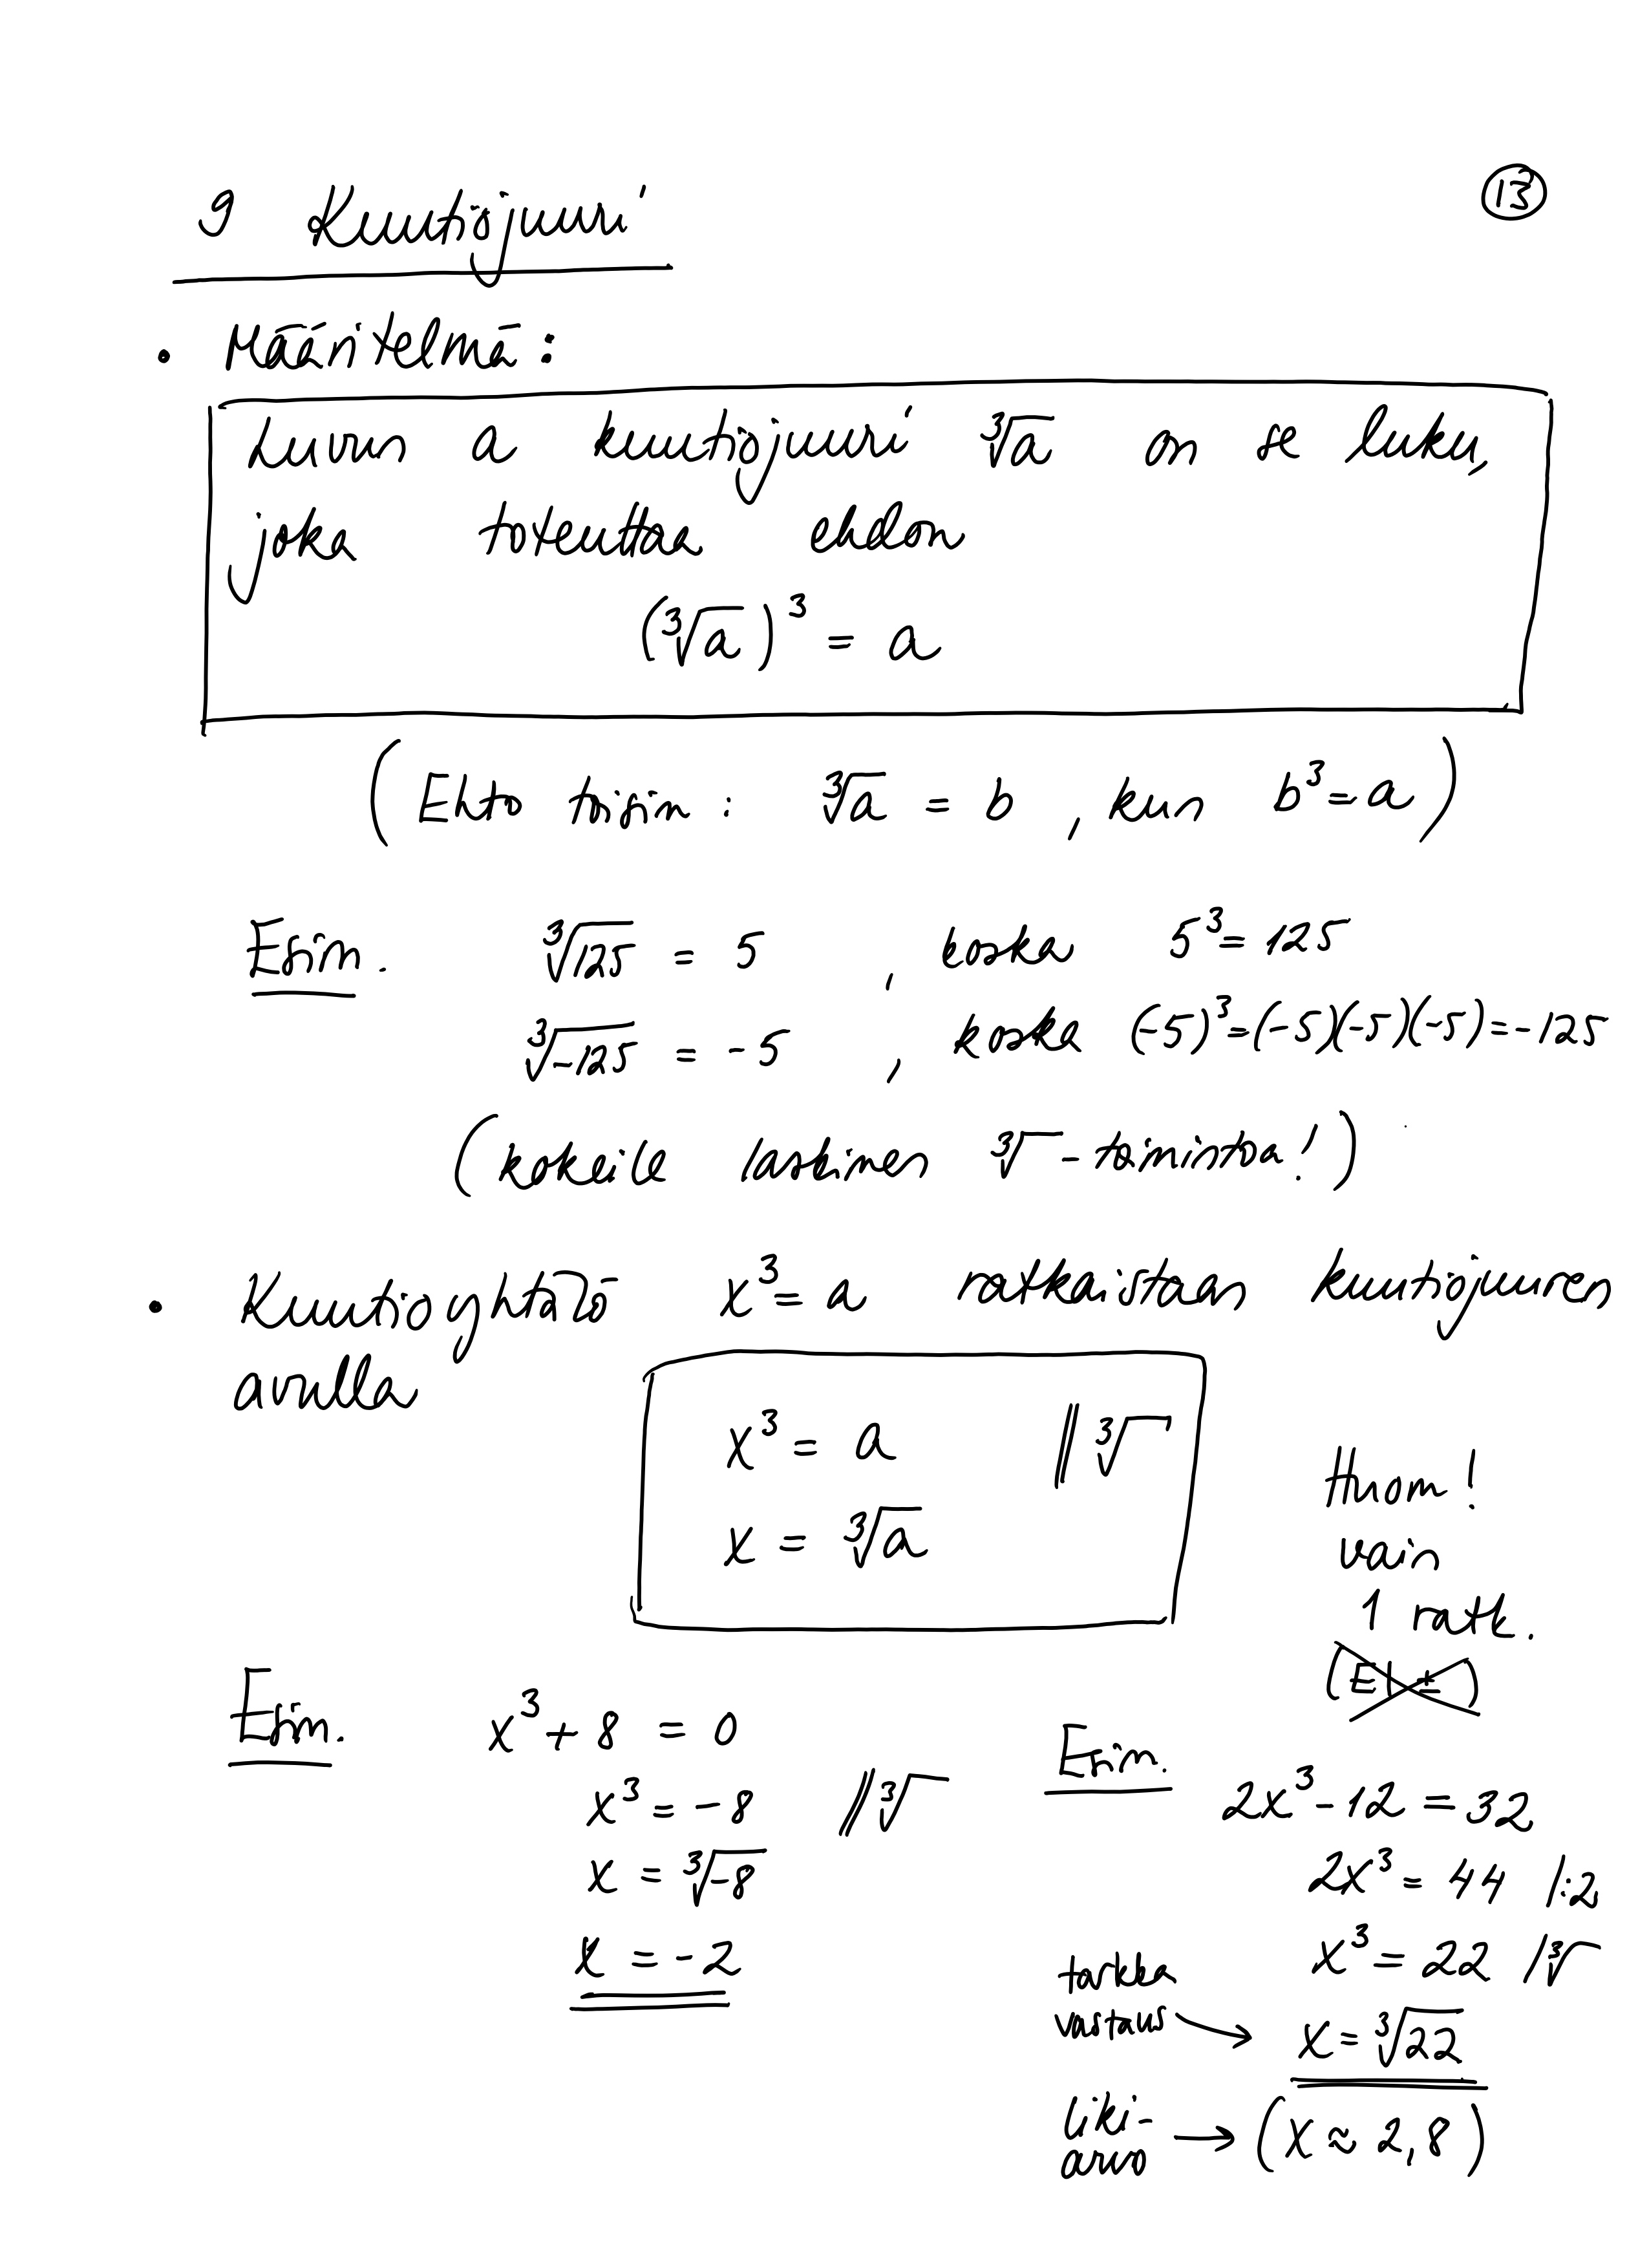 9 Kuutiojuuri
13
• Määritelmä:
Luvun a kuutiojuuri ∛a on se luku,
joka toteuttaa ehdon
(∛a)³ = a
(Ehto toisin: ∛a = b, kun b³ = a)
Esim. ∛125 = 5, koska 5³ = 125
∛-125 = -5, koska (-5)³ = (-5)(-5)(-5) = -125
(kokeile laskimen ∛ -toimintoa!)
• Kuutioyhtälö x³ = a ratkaistaan kuutiojuuren
avulla
x³ = a ||∛
x = ∛a
Huom!
vain
1 ratk.
(EI ±)
Esim. x³ + 8 = 0
x³ = -8 ||∛
x = ∛-8
x = -2
Esim.
2x³ - 12 = 32
2x³ = 44 |:2
x³ = 22 |∛
tarkka
vastaus → x = ∛22
liki-
arvo → (x ≈ 2,8)